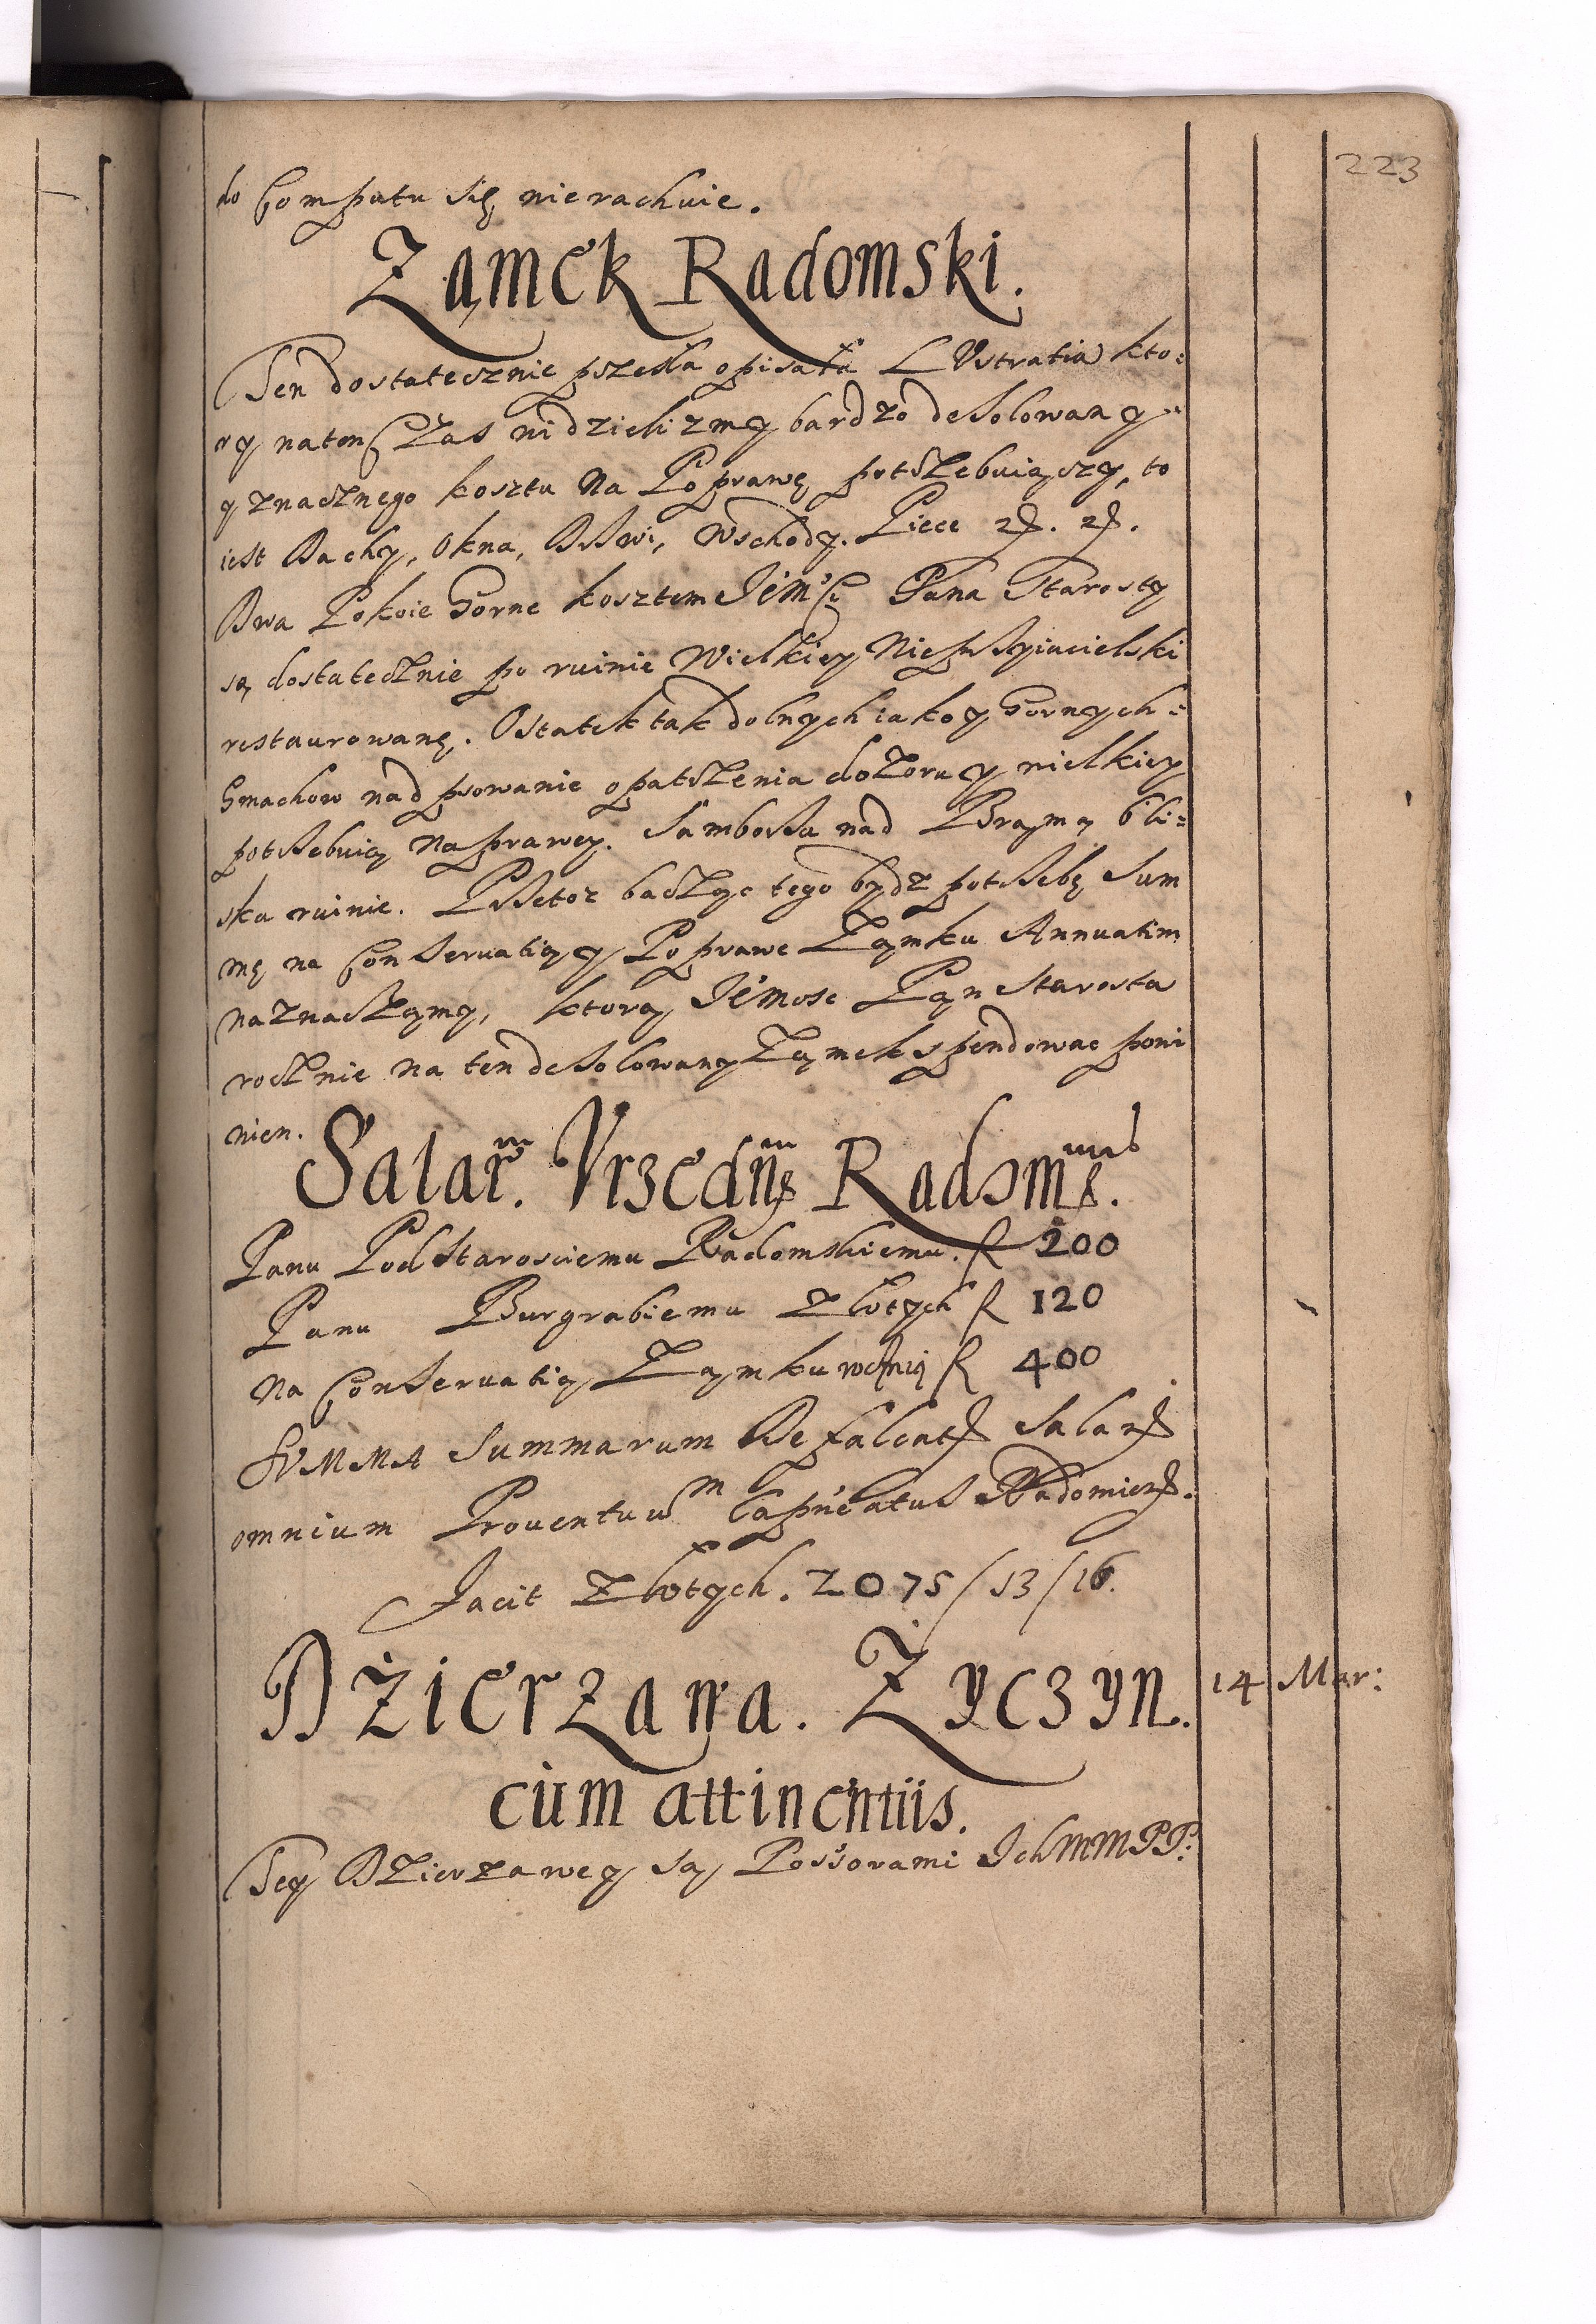 223
do Computu się nierachuie.
Zamek Radomski.
Ten dostatecznie przeszła opisała LVstratia kto=
ry naten Czas widzielizmy bardzo desolowany
y znacznego kosztu na Poprawę potrzebuiączy, to
iest Dachy, Okna, Drzwi, Wschody. Piece
Dwa Pokoie Gorne kosztem Jem̃ści Pana Starosty
są dostatecznie po ruinie Wielkiey Nieprzyiacielski
restaurowane. Ostatek tak dolnych iako y Gornych=
Gmachow nad psowanie opatrzenia dozoru y wielkiey
potrzebuią Naprawy. Samborza nad Bramą bli=
ska ruinie. Przetoz baczyc tego bydz potrzebę Sum
mę na Conseruatią y Poprawe Zamku Annuatim
naznaczamy, ktorą Jemosc Pan Starosta
rocznie na ten desolowany Zamek spendowac powi
nien.
Salar. Vrzedn Radom.
Panu PodStarosciemu Radomskiemu. f 200
Panu Burgrabiemu Złotych f 120
na Conseruatią Zamku rocznię f 400
SVMMA Summarum Defalcatis Salariis
omnium Prouentuum Capitēatus Radomien.
Facit Złotych. 2075/13/16.
Dzierzawa. Zyczyn. 14 Mar:
cum attinentiis.
Tey Dzierzawey są Possorami IchMMPP: